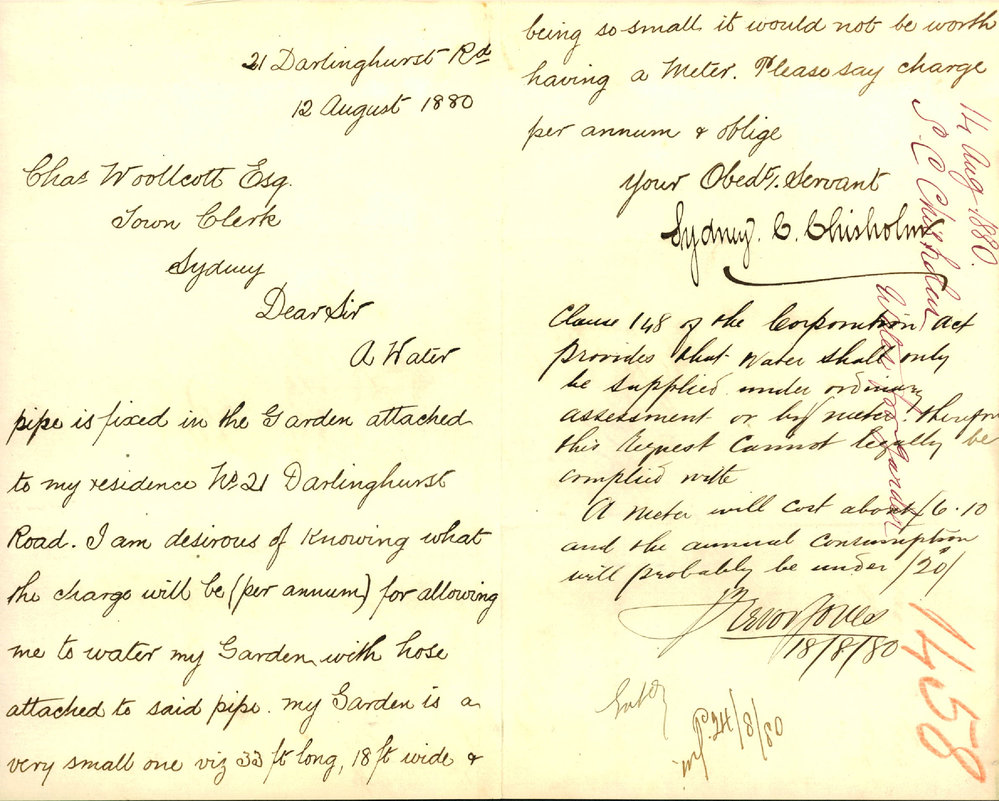 21 Darlinghurst Rd
12 August 1880
Chas Woollcott Esq.
Town Clerk
Sydney
Dear Sir
A Water
pipe is fixed in the Garden attached
to my residence No 21 Darlinghurst
Road. I am desirous of Knowing what
the charge will be (per annum) for allowing
me to water my Garden with hose
attached to said pipe. my Garden is a
very small one viz 33 ft long, 18 ft wide &
being so small it would not be worth
having a Meter. Please say charge
per annum & oblige
Your Obedt. Servant
Sydney. C. Chisholm
Clause 148 of the Corporation Act
provides that water shall only
be supplied under ordinary
assessment or by meter, therefore
this request cannot legally be
complied with
A meter will cost about £6.10
and the annual consumption
will probably be under /20/
Trevor Jones
18/8/80
24/8/80
14 Aug 1880.
S. C. Chisholm
Water for Garden
1458